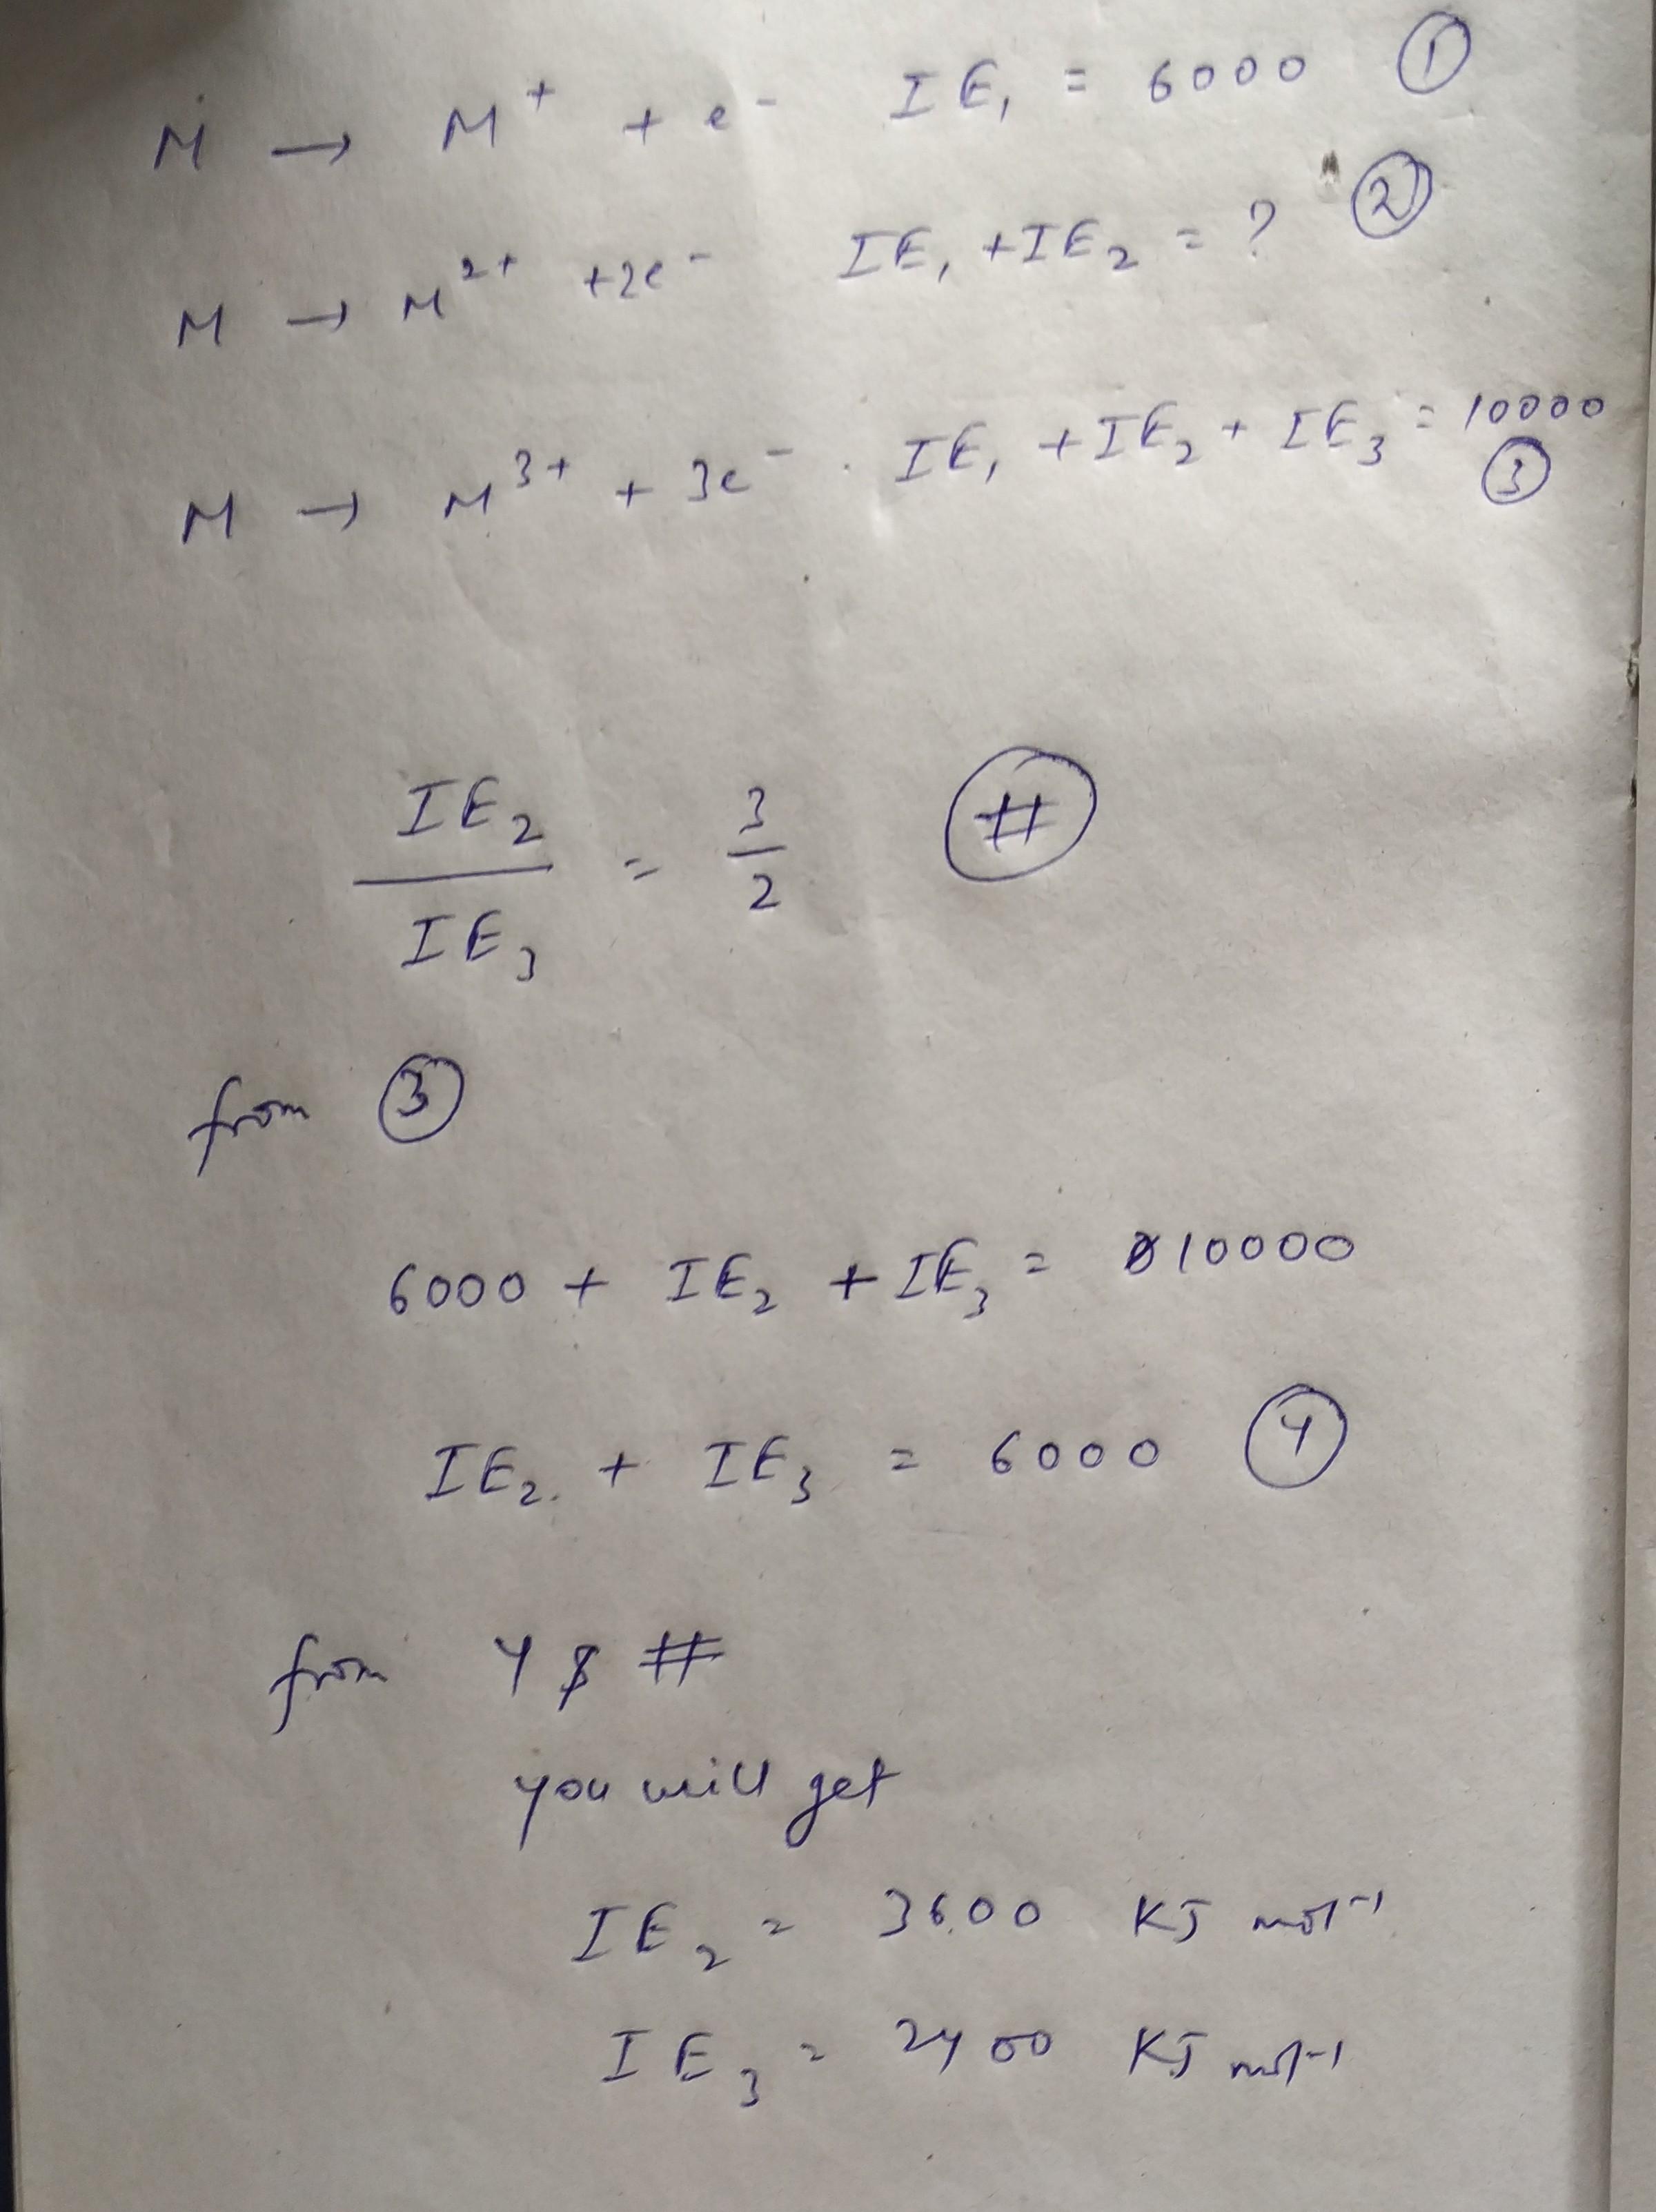 M → M⁺ + e⁻ IE₁ = 6000 ①
M → M²⁺ +2e⁻ IE₁ +IE₂ = ? ②
M → M³⁺ + 3e⁻. IE₁ +IE₂ + IE₃ = 10000
③
IE₂ / IE₃ = 3 / 2 (#)
from ③
6000 + IE₂ + IE₃ = 10000
IE₂. + IE₃ = 6000 ④
from 4 & #
you will get
IE₂ = 3600 KJ mol⁻¹
IE₃ = 2400 KJ mol⁻¹